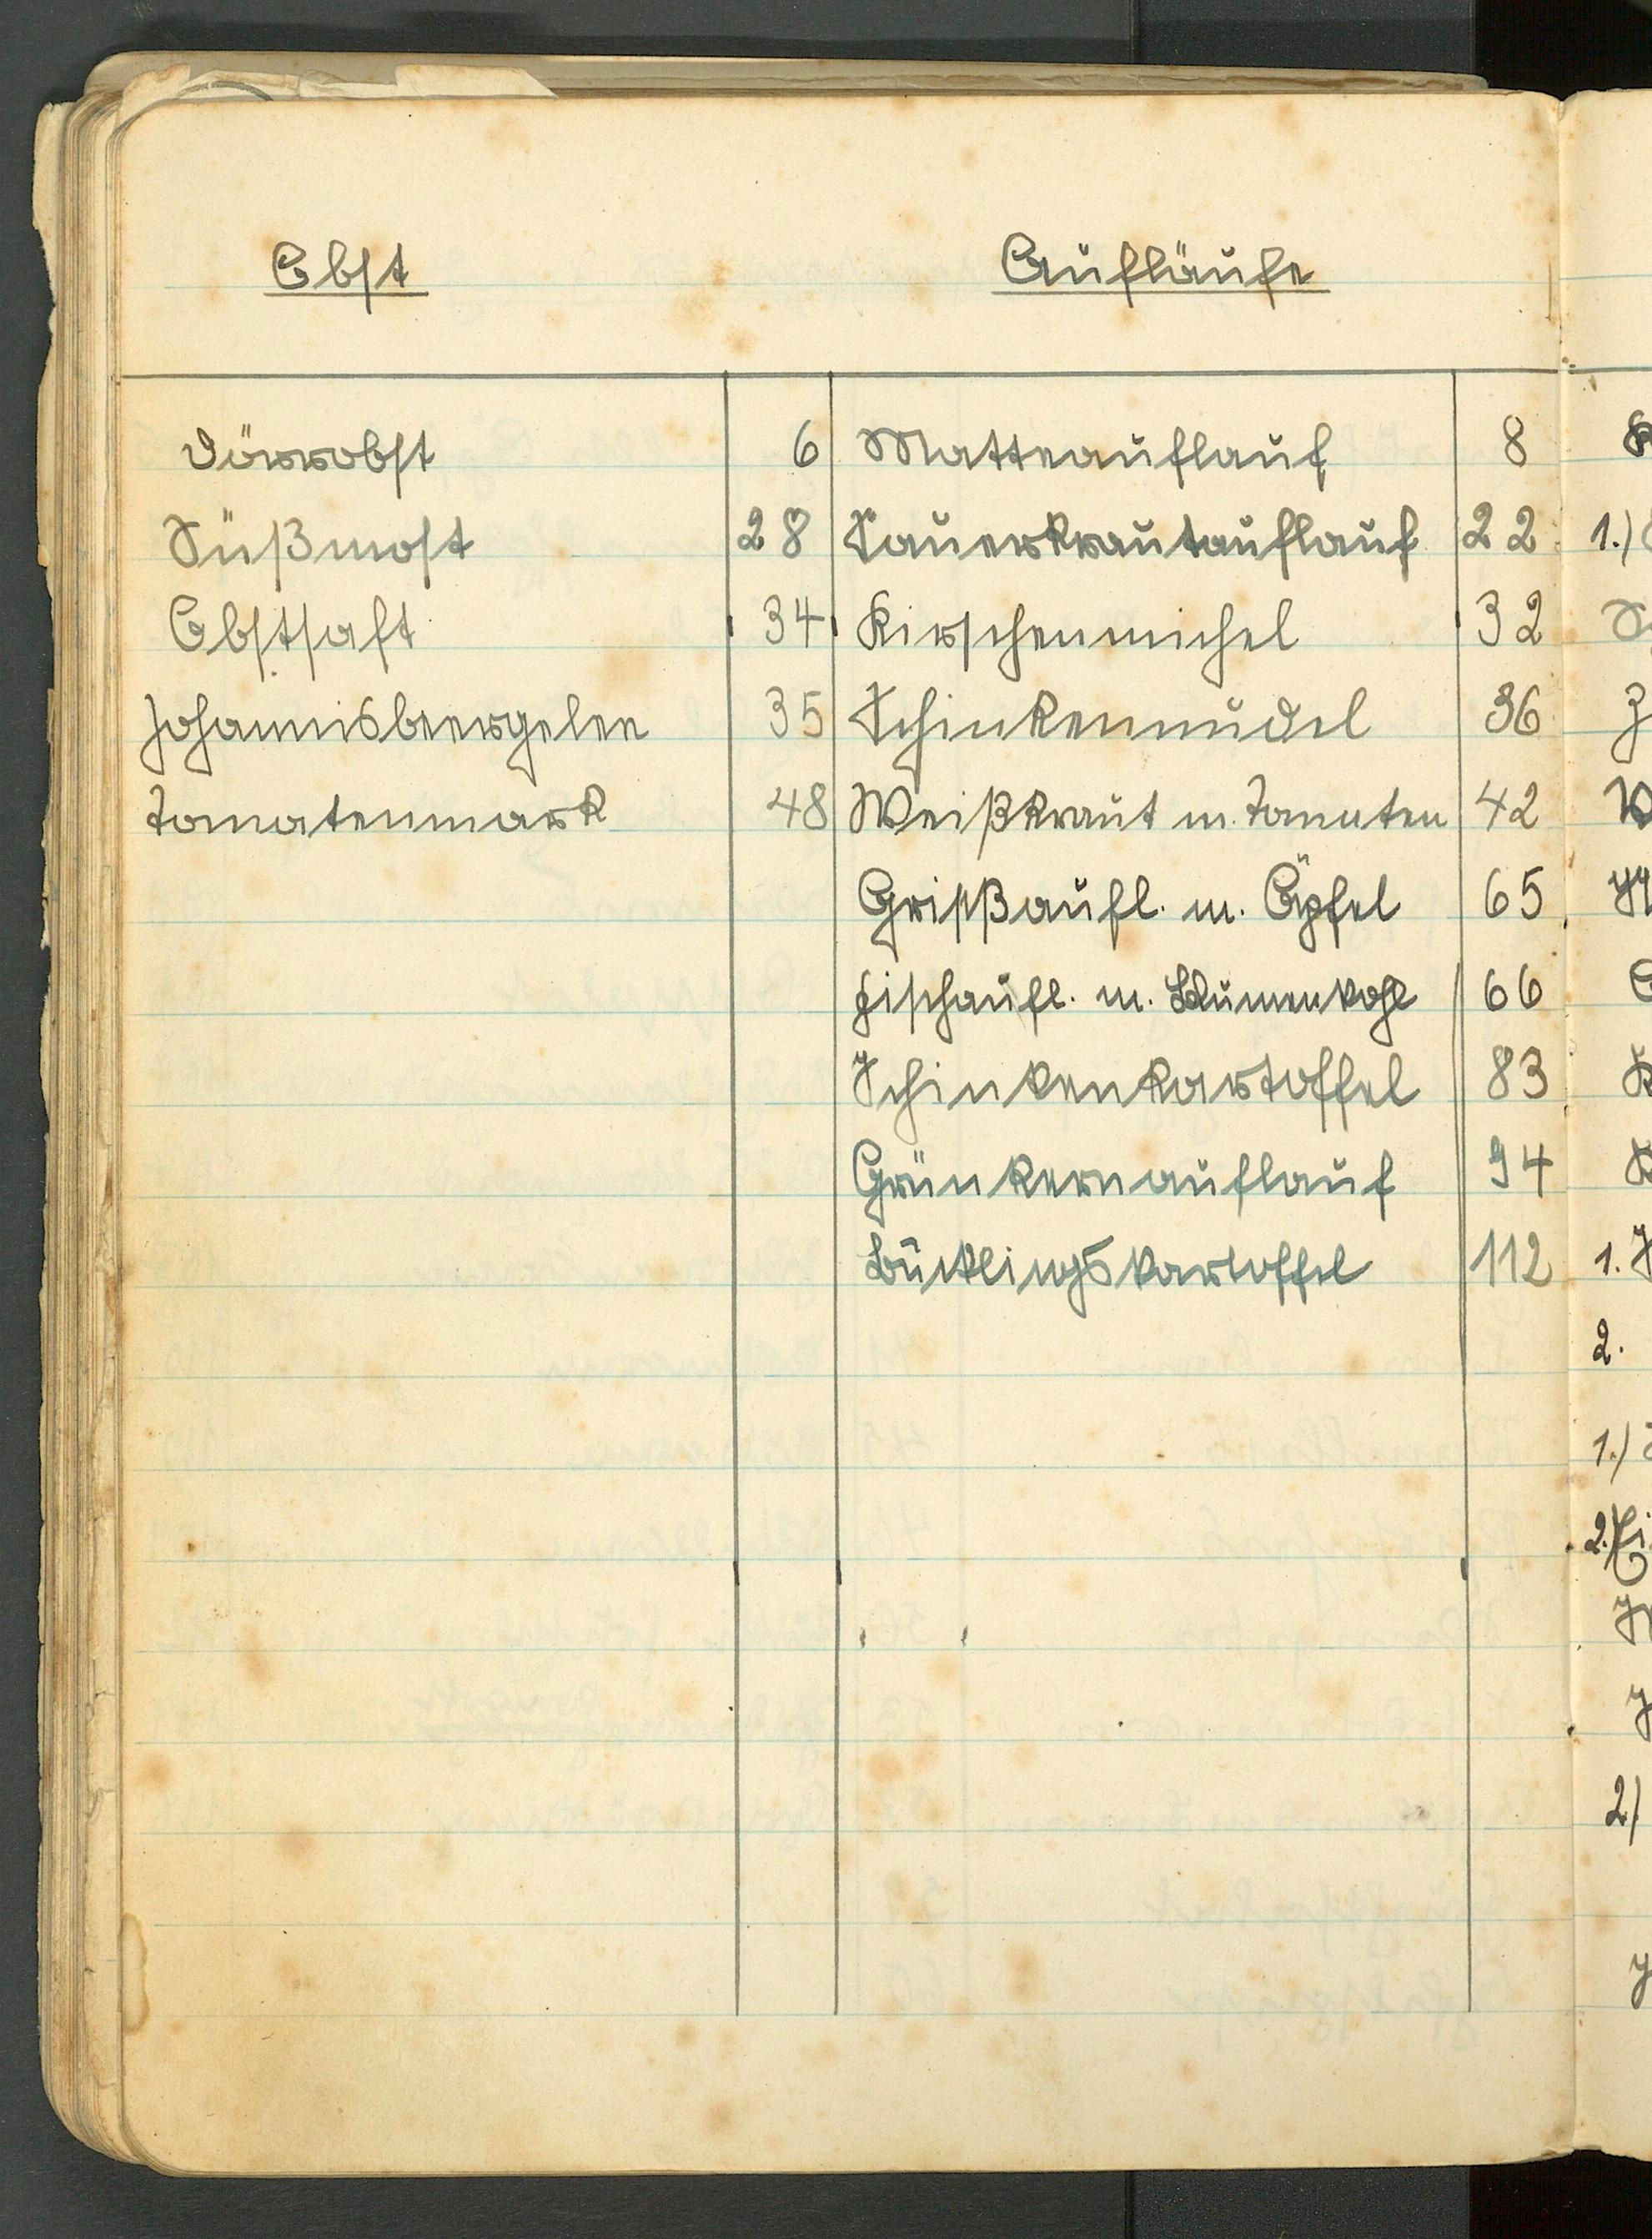 Obst Aufläufe
Dörrobst 6 Matteauflauf 8
Süßmost 28 Sauerkrautauflauf 22
Obstsaft 34 Kirschenmichel 32
Johannisbeergelee 35 Schinkennudel 36
Tomatenmark 48 Weißkraut m. Tomaten 42
Griesßaufl. m. Äpfel 65
Fischaufl. m. Blumenkohl 66
Schinkenkartoffel 83
Grünkernauflauf 94
Bücklingskartoffel 112
1.)
1.
2.
1.)
2.)
2)